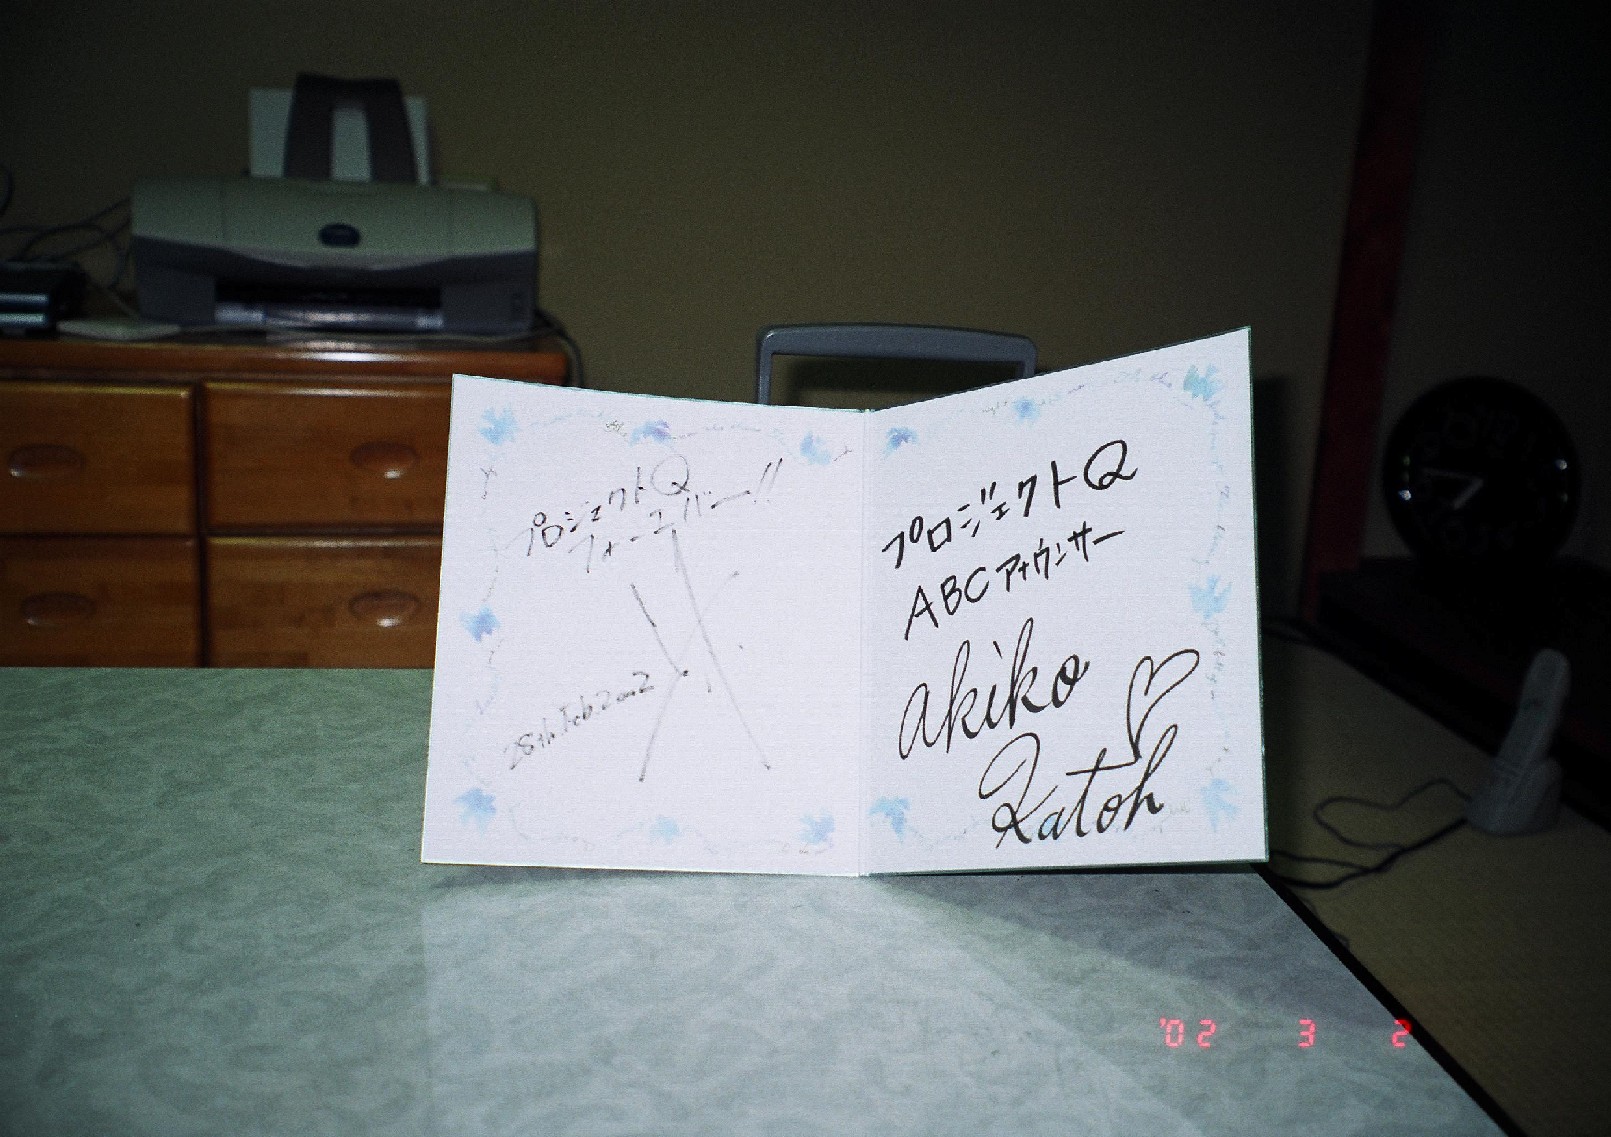 プロジェクトQ
フォーエバー!!
28th.Feb.2002
プロジェクトQ
ABCアナウンサー
akiko
Katoh
'02 3 2